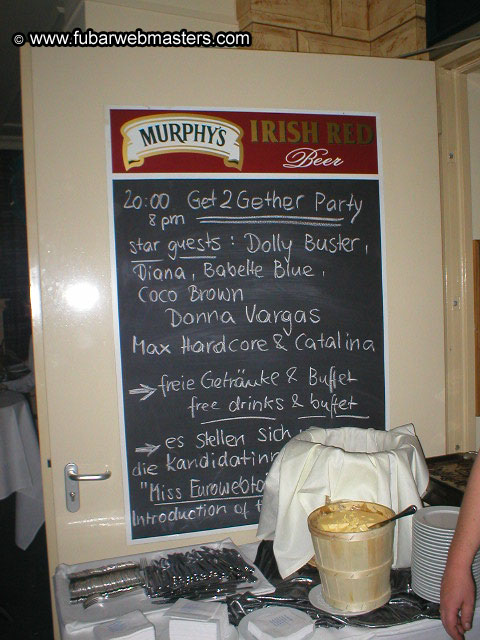 © www.fubarwebmasters.com
MURPHY'S IRISH RED
Beer
20:00 Get 2 Gether Party
8 pm
star guests : Dolly Buster,
Diana, Babette Blue,
Coco Brown
Donna Vargas
Max Hardcore & Catalina
→ freie Getränke & Buffet
free drinks & buffet
→ es stellen sich
die Kandidatinn
"Miss Eurowebto
Introduction of t